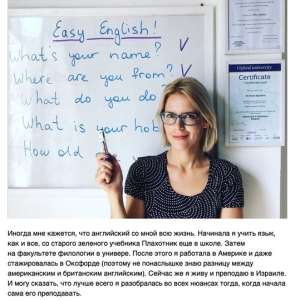 Easy English!
What's your name?
Where are you from?
What do you do
What is your hob
How old
Oxford university
Certificate
Иногда мне кажется, что английский со мной всю жизнь. Начинала я учить язык,
как и все, со старого зеленого учебника Плахотник еще в школе. Затем
на факультете филологии в универе. После этого я работала в Америке и даже
стажировалась в Оксфорде (поэтому не понаслышке знаю разницу между
американским и британским английским). Сейчас же я живу и преподаю в Израиле.
И могу сказать, что лучше всего я разобралась во всех нюансах тогда, когда начала
сама его преподавать.